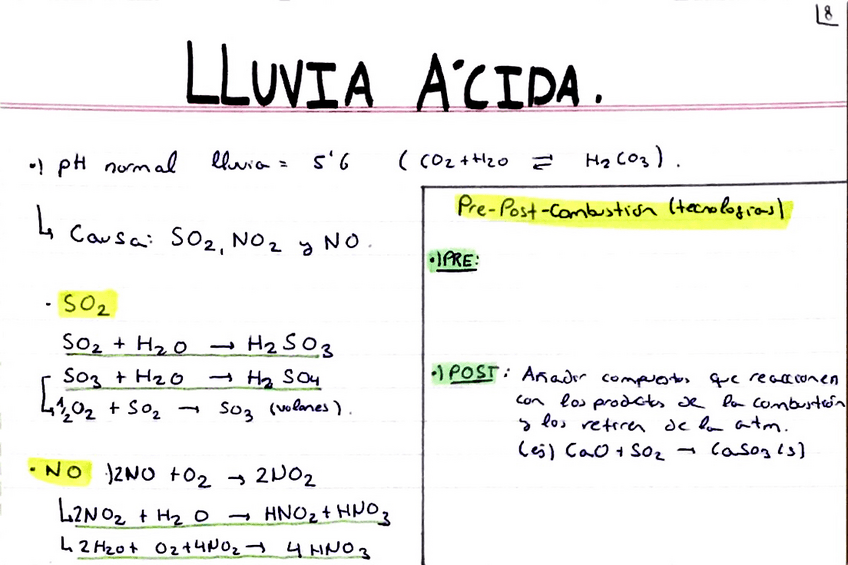 8
LLUVIA ÁCIDA.
•) pH normal lluvia = 5'6 (CO2+H2O ⇌ H2CO3).
↳ Causa: SO2, NO2 y NO.
· SO2
SO2 + H2O → H2SO3
SO3 + H2O → H2SO4
↳ 1/2 O2 + SO2 → SO3 (volanes).
· NO )2NO + O2 → 2NO2
↳ 2NO2 + H2O → HNO2 + HNO3
↳ 2H2O + O2 + 4NO2 → 4HNO3
Pre-Post-Combustión (tecnologias)
•) PRE:
•) POST: Añadir compuestos que reaccionen
con los productos de la combustión
y los retiren de la atm.
(ej) CaO + SO2 → CaSO3 (s)